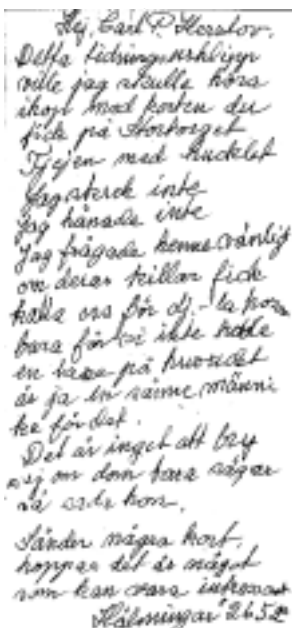 Hej, Carl P. Herslov.
Detta tidningsurklipp
ville jag skulle höra
ihop med korten du
fick på Stortorget
Tjejen med hucklet
Jag skrek inte
Jag hånade inte
Jag frågade henne vänligt
om deras killar fick
kalla oss för dj-la hora
bara för vi inte hade
en på huvudet
är ja en sämre männi
ka för det.
Det är inget att bry
sej om dom bara säger
så sade hon.
Sänder några kort,
hoppas det är något
som kan vara intressant
Hälsningar